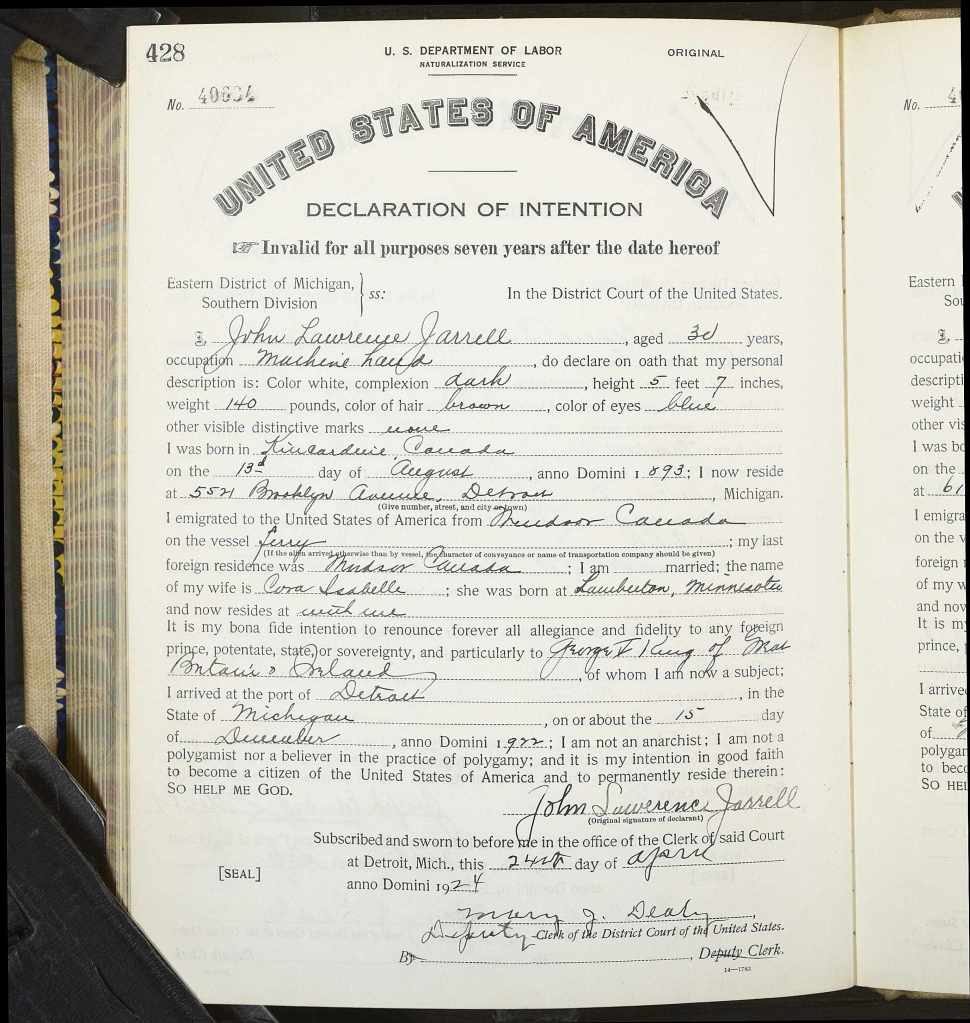 428
U. S. DEPARTMENT OF LABOR
NATURALIZATION SERVICE
ORIGINAL
No.
UNITED STATES OF AMERICA
DECLARATION OF INTENTION
☞ Invalid for all purposes seven years after the date hereof
Eastern District of Michigan,
Southern Division ss: In the District Court of the United States.
I, John Lawrence Jarrell, aged 30 years,
occupation Machine hand, do declare on oath that my personal
description is: Color white, complexion dark, height 5 feet 7 inches,
weight 140 pounds, color of hair brown, color of eyes blue
other visible distinctive marks none
I was born in Kincardine, Canada
on the 13th day of August, anno Domini 1893; I now reside
at 5521 Brooklyn Avenue, Detroit, Michigan.
(Give number, street, and city or town)
I emigrated to the United States of America from Windsor Canada
on the vessel ferry; my last
(If the alien arrived otherwise than by vessel, the character of conveyance or name of transportation company should be given)
foreign residence was Windsor Canada; I am married; the name
of my wife is Cora Isabelle; she was born at Lamberton, Minnesota
and now resides at with me
It is my bona fide intention to renounce forever all allegiance and fidelity to any foreign
prince, potentate, state, or sovereignty, and particularly to George V King of Great
Britain & Ireland, of whom I am now a subject;
I arrived at the port of Detroit, in the
State of Michigan, on or about the 15 day
of December, anno Domini 1922; I am not an anarchist; I am not a
polygamist nor a believer in the practice of polygamy; and it is my intention in good faith
to become a citizen of the United States of America and to permanently reside therein:
SO HELP ME GOD.
John Lawerence Jarrell
(Original signature of declarant)
Subscribed and sworn to before me in the office of the Clerk of said Court
at Detroit, Mich., this 24th day of April
[SEAL]
anno Domini 1924
Mary J. Dealy,
Deputy Clerk of the District Court of the United States.
By , Deputy Clerk.
14—1783
No. 4
Eastern
Sou
I,
occupati
descripti
weight
other vis
I was bo
on the
at 61
I emigra
on the v
foreign
of my w
and nov
It is my
prince,
I arrive
State of
of
polygan
to beco
SO HEL